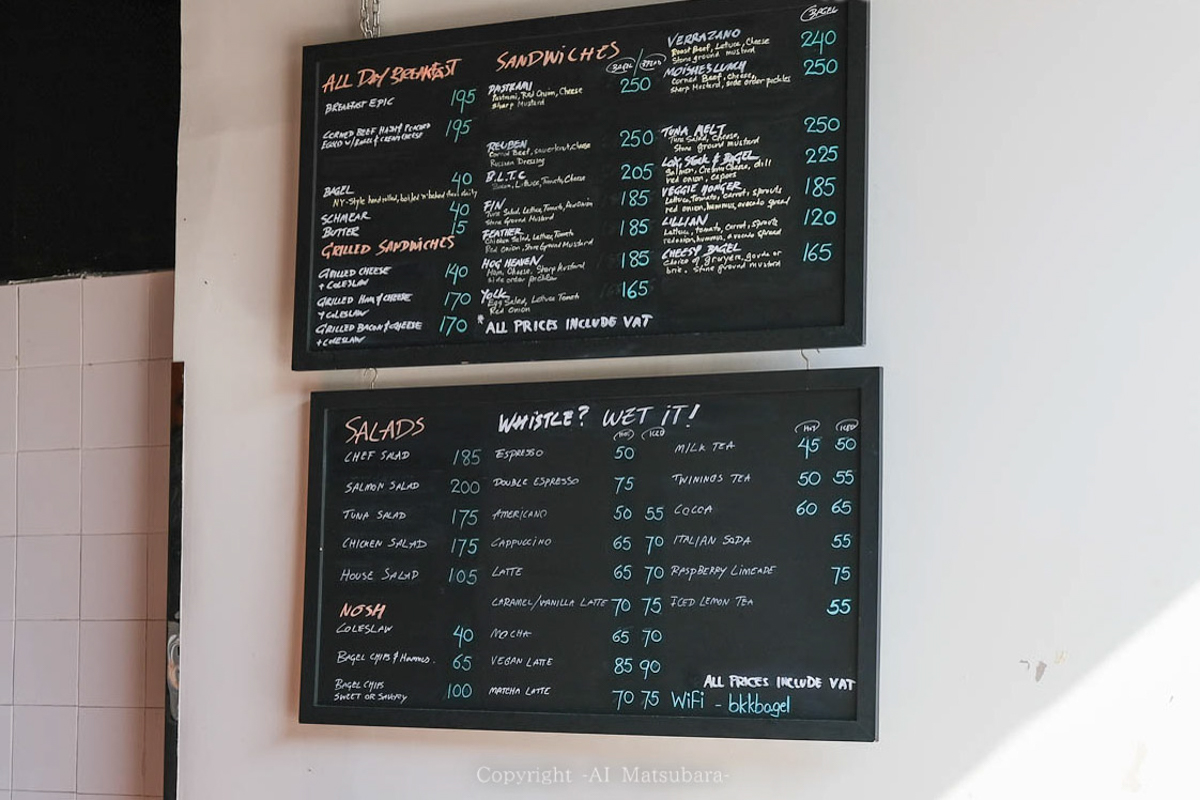 ALL DAY BREAKFAST
BREAKFAST EPIC 195
CORNED BEEF HASH & POACHED 195
EGGS W/ BAGEL & CREAM CHEESE
BAGEL 40
NY-Style hand rolled, boiled 'n' baked fresh daily
SCHMEAR 40
BUTTER 15
GRILLED SANDWICHES
GRILLED CHEESE 140
+ COLESLAW
GRILLED HAM & CHEESE 170
+ COLESLAW
GRILLED BACON & CHEESE 170
+ COLESLAW
SANDWICHES
BAGEL / BREAD
PASTRAMI 250
Pastrami, Red Onion, Cheese
Sharp Mustard
REUBEN 250
Corned Beef, sauerkraut, cheese
Russian Dressing
B.L.T.C 205
Lettuce, Tomato, Cheese
FIN 185
Tuna Salad, Lettuce, Tomato, Red Onion
Stone Ground Mustard
FEATHER 185
Chicken Salad, Lettuce, Tomato
Red Onion, Stone Ground Mustard
HOG HEAVEN 185
Ham, Cheese, Sharp Mustard
side order pickles
YOLK 165
Egg Salad, Lettuce Tomato
Red Onion
* ALL PRICES INCLUDE VAT
BAGEL
VERRAZANO 240
Roast Beef, Lettuce, Cheese
Stone ground mustard
MOISHES LUNCH 250
Corned Beef, Cheese,
Sharp Mustard, side order pickles
TUNA MELT 250
Tuna Salad, Cheese,
Stone ground mustard
LOX, STOCK & BAGEL 225
Salmon, Cream Cheese, dill
red onion, capers
VEGGIE MONGER 185
Lettuce, Tomato, carrot, sprouts
red onion, hummus, avocado spread
LILLIAN 120
Lettuce, tomato, carrot, sprouts
red onion, hummus, avocado spread
CHEESY BAGEL 165
Choice of gruyere, gouda or
brie. Stone ground mustard
SALADS
CHEF SALAD 185
SALMON SALAD 200
TUNA SALAD 175
CHICKEN SALAD 175
HOUSE SALAD 105
NOSH
COLESLAW 40
BAGEL CHIPS & HUMMUS. 65
BAGEL CHIPS 100
SWEET OR SAVORY
WHISTLE? WET IT!
HOT ICED
ESPRESSO 50
DOUBLE ESPRESSO 75
AMERICANO 50 55
CAPPUCCINO 65 70
LATTE 65 70
CARAMEL/VANILLA LATTE 70 75
MOCHA 65 70
VEGAN LATTE 85 90
MATCHA LATTE 70 75
HOT ICED
MILK TEA 45 50
TWININGS TEA 50 55
COCOA 60 65
ITALIAN SODA 55
RASPBERRY LIMEADE 75
ICED LEMON TEA 55
ALL PRICES INCLUDE VAT
WiFi - bkkbagel
Copyright -AI Matsubara-